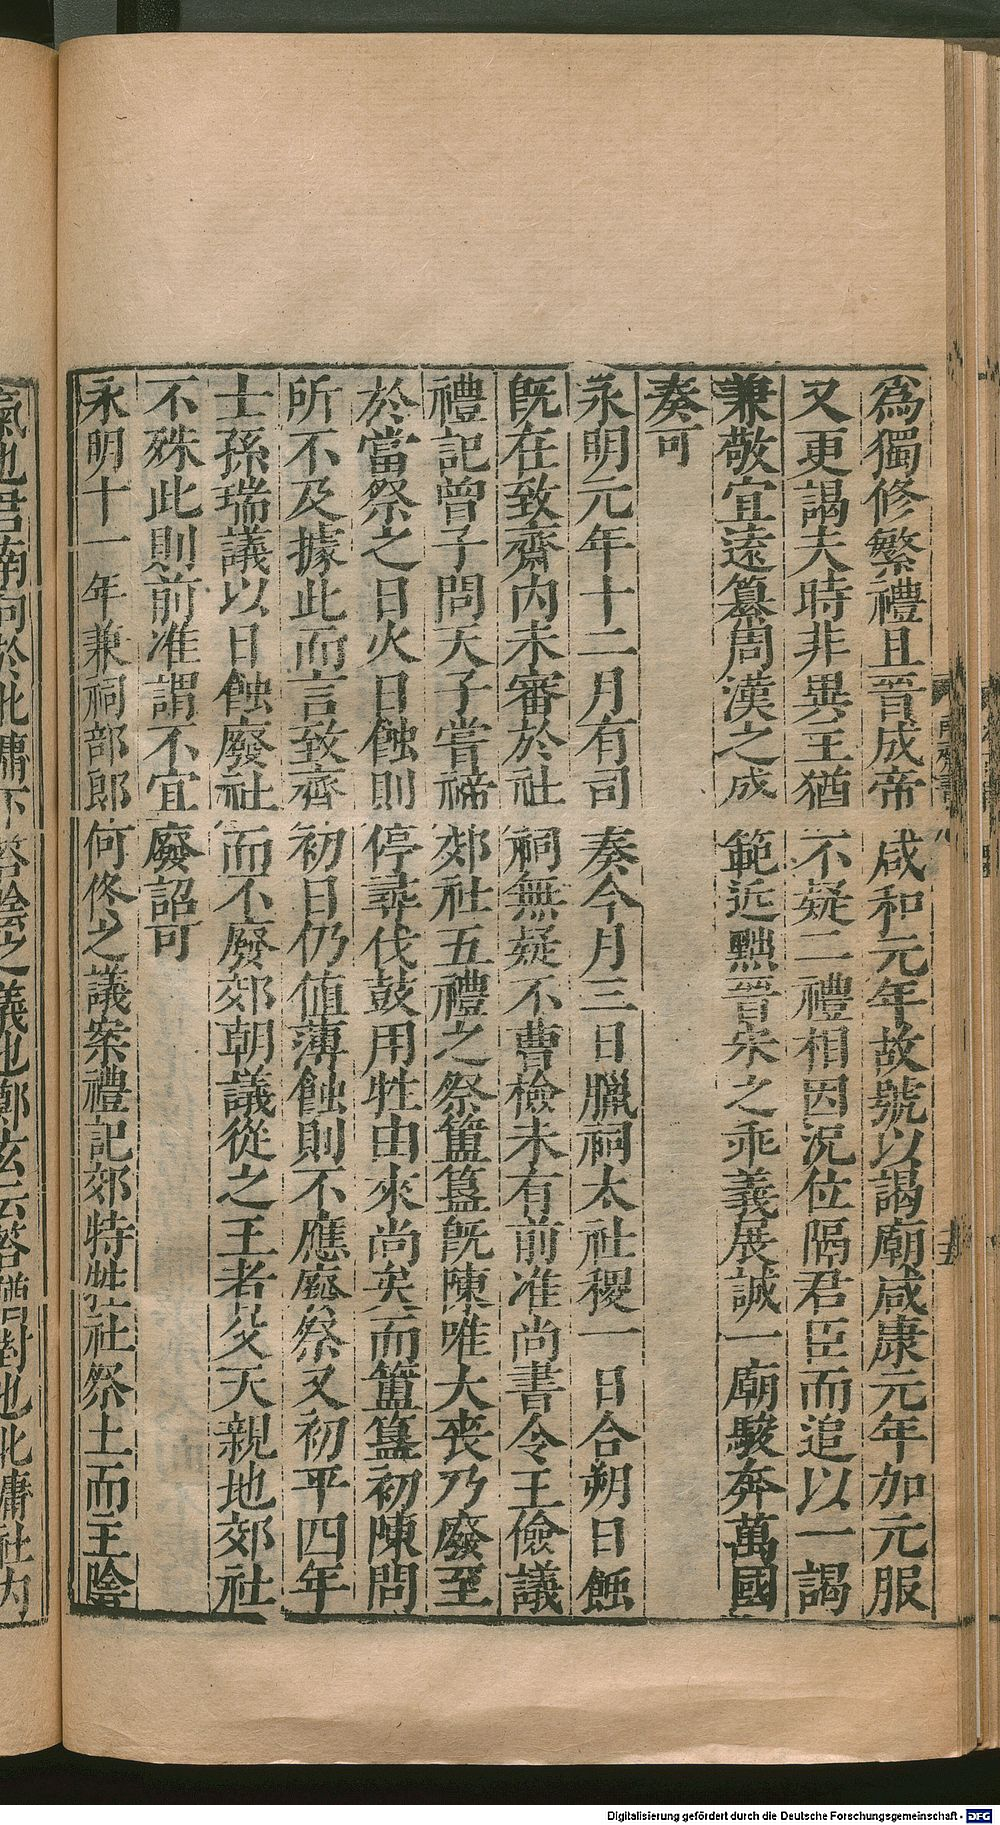 爲獨修繁禮且晉成帝咸和元年故號以謁廟咸康元年加元服
又更謁夫時非異主猶不疑二禮相因況位隔君臣而追以一謁
兼敬宜遠纂周漢之成範近黜晉宋之乖義展誠一廟駿奔萬國
奏可
永明元年十二月有司奏今月三日臘祠太社稷一日合朔日蝕
旣在致齋內未審於社祠無疑不曹檢未有前准尚書令王儉議
禮記曾子問天子嘗禘郊社五禮之祭簠簋旣陳唯大喪乃廢至
於當祭之日火日蝕則停尋伐鼓用牲由來尚矣而簠簋初陳問
所不及據此而言致齊初日仍值薄蝕則不應廢祭又初平四年
士孫瑞議以日蝕廢社而不廢郊朝議從之王者父天親地郊社
不殊此則前准謂不宜廢詔可
永明十一年兼祠部郎何佟之議案禮記郊特牲社祭土而主陰
氣也君南向於北墉下荅陰之義也鄭玄云荅猶對也北墉社內